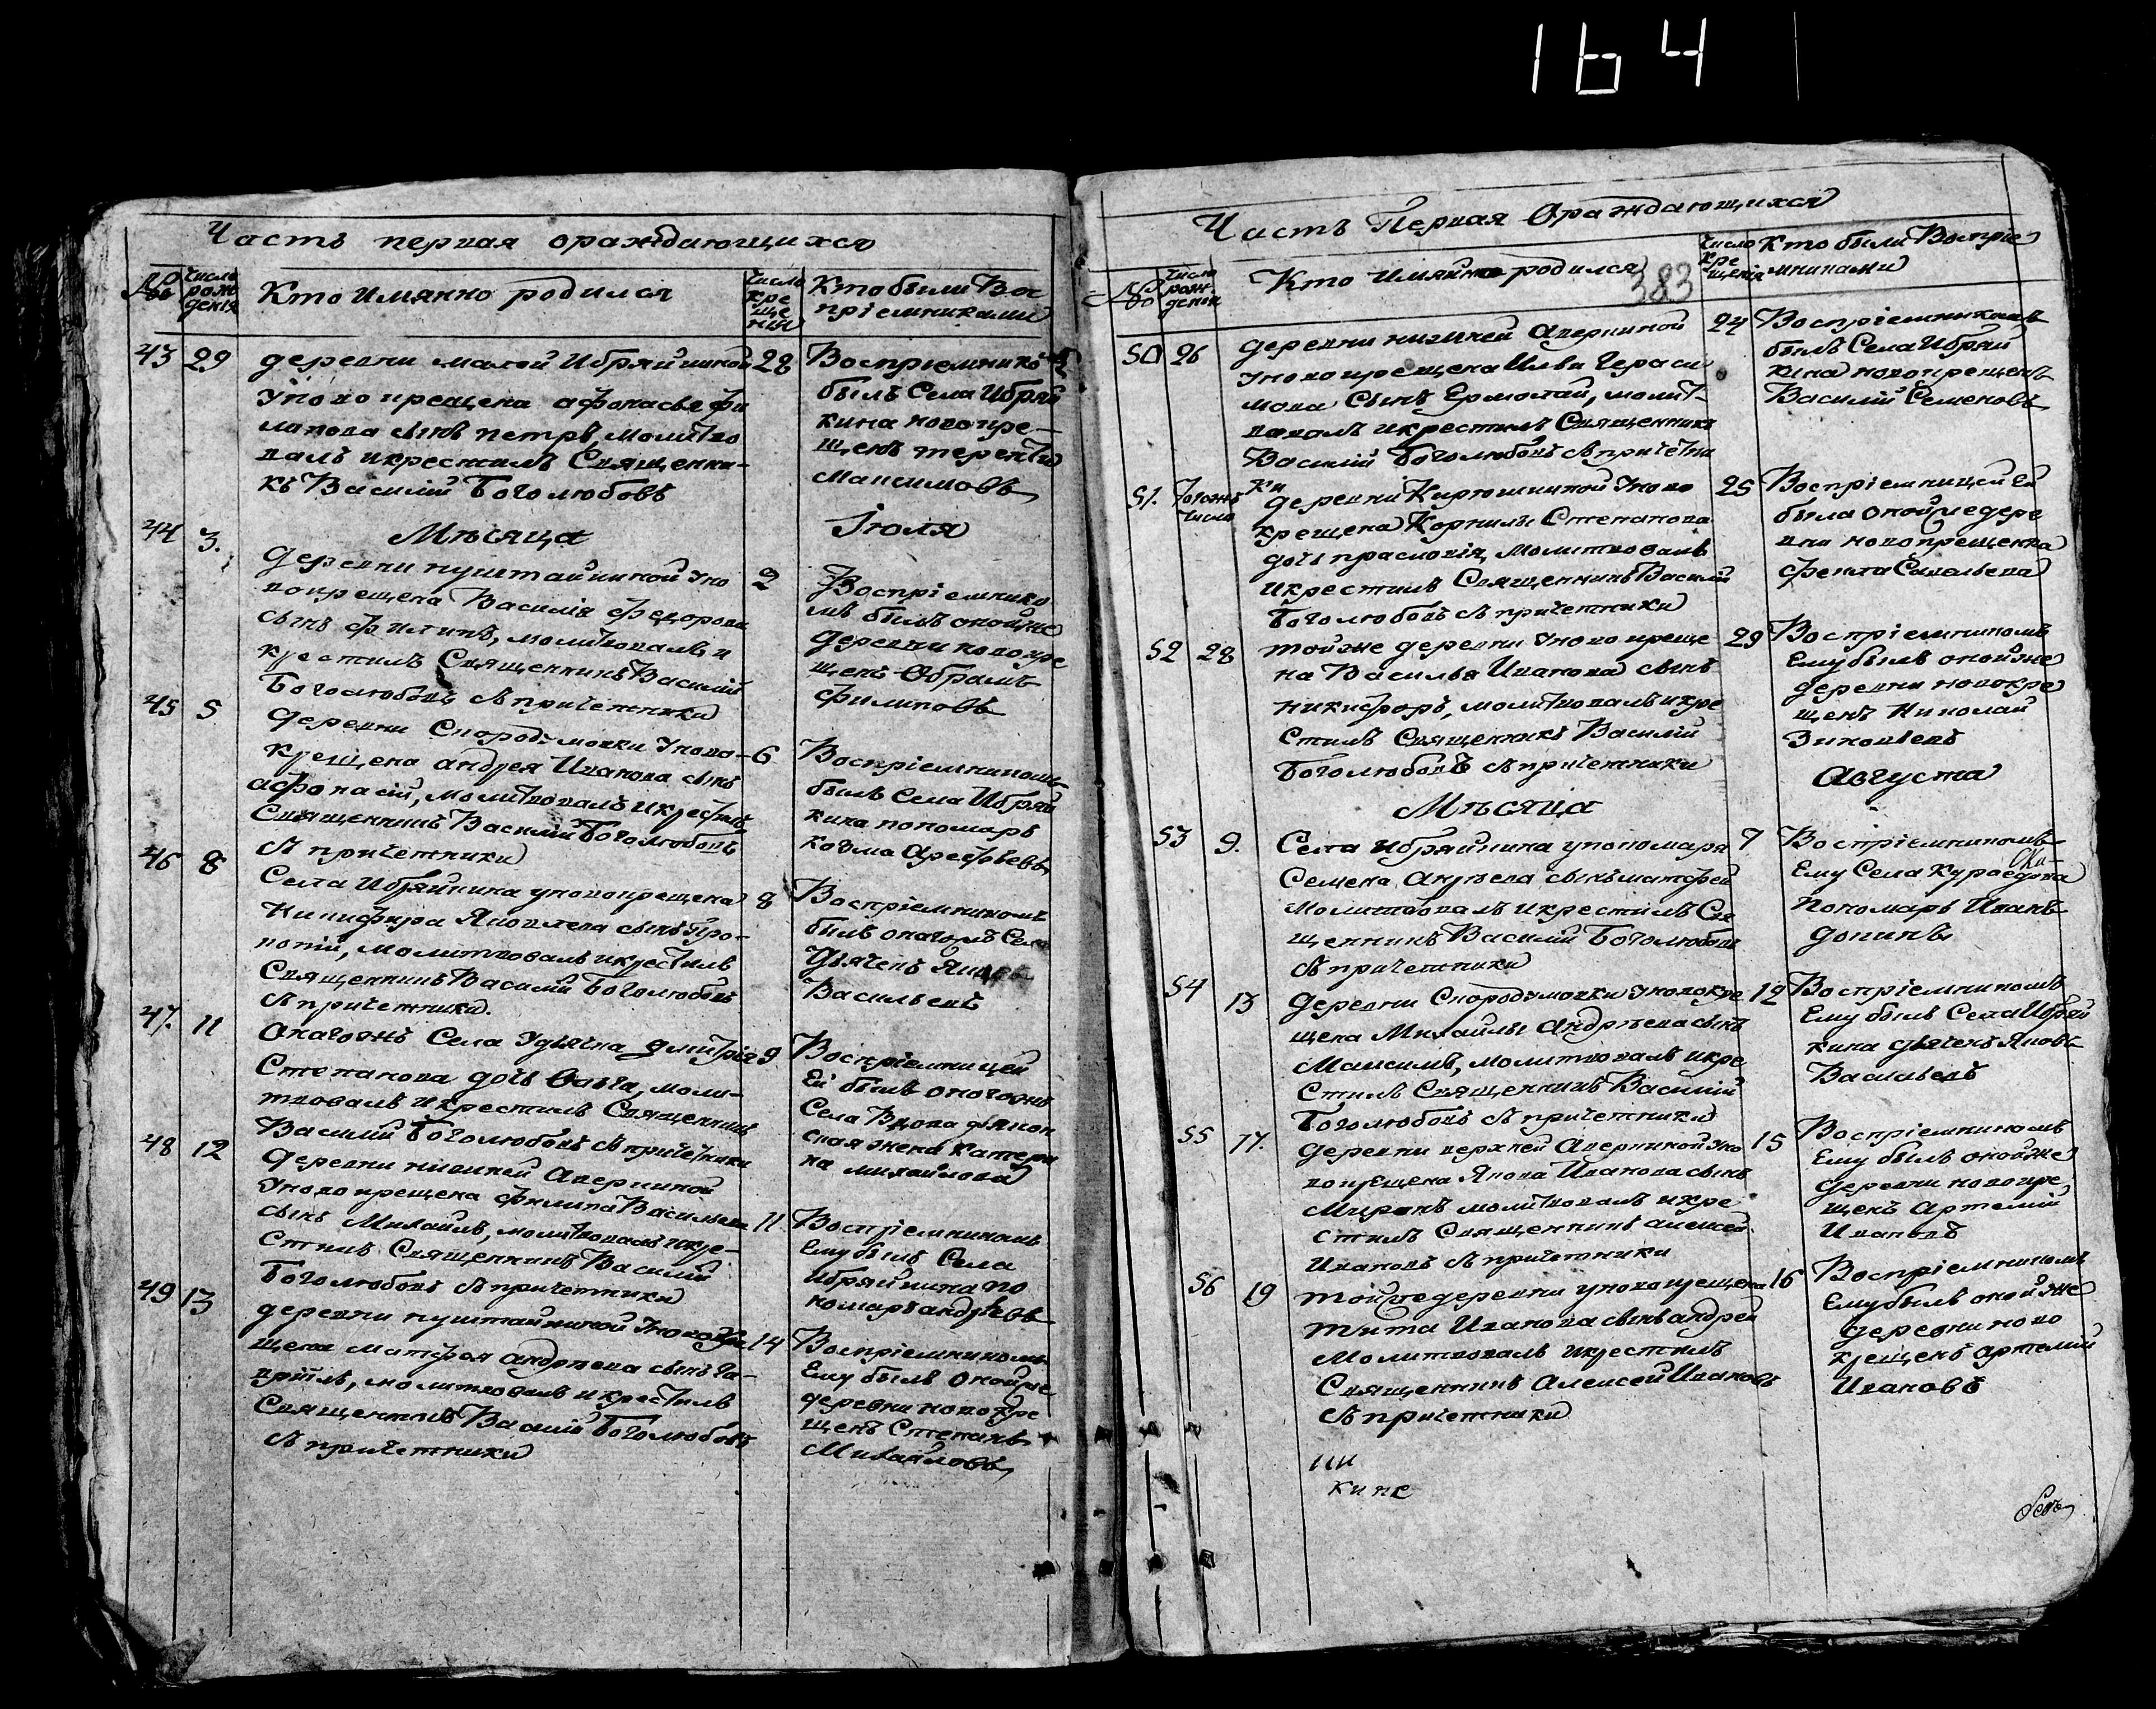 164
Часть первая ораждающихся
№
Число рож денія
Кто имянно родился
Число кре ще нія
Кто были Вос
пріемниками
43 29
деревни малой Ибряйкиной
у новокрещена афонасье фи
липова сынъ петръ, молитво
валъ икрестилъ Священни-
къ Василий Боголюбовъ
28
Воспріемникомъ
былъ Села Ибряй
кина новокре-
щенъ терентий
Максимовъ
Мѣсяца
Іюля
44 3.
деревни пуштайкиной уно
вокрещена Василія федорова
сынъ филипъ, молитвовалъ и
крестилъ Священникъ Василий
Боголюбовъ спричетники
2
Воспріемнико
мъ былъ онойже
деревни новокре
щенъ Обрамъ
филиповъ
45 5
деревни Скородумовки уново-
крещена андрея Иванова сынъ
афонасій, молитвовалъ икрестилъ
Священникъ Василий Боголюбовъ
спричетники
6
Воспріемникомъ
былъ Села Ибряй
кина пономарь
козма Арефьевъ
46 8
Села Ибряйкина уновокрещена
Никифора Яковлева сынъ Про-
копій, молитвовалъ икрестилъ
Священникъ Василий Боголюбовъ
спричетники.
8
Воспріемникомъ
былъ оногожъ Села
дьячекъ Яковъ
Васильевъ
47. 11
Оногожъ Села удьячка дмитрія
Степанова дочь Ольга, моли-
твовалъ икрестилъ Священникъ
Василий Боголюбовъ спричетники
9.
Воспріемницей
Ей былъ оногожъ
Села Вдова дьякон
ская жена Катери
на михайлова
48 12
деревни нижней Аверкиной
уновокрещена филипа Васильева
сынъ Михаилъ, молитвовалъ икре-
стилъ Священникъ Василий
Боголюбовъ спричетники
11
Воспріемникомъ
Ему былъ Села
Ибряйкина по
номарь андрѣевъ
49 13
деревни пуштайкиной уновокре
щена матфея андрѣева сынъ Га-
врилъ, молитвовалъ икрестилъ
Священникъ Василий Боголюбовъ
спричетники
14
Воспріемникомъ
Ему былъ Онойже
деревни новокре
щенъ Степанъ
Михайловъ
Часть Первая Ораждающихся
№
Число рож денія
Кто Имянно родился
383
Число кре щенія
Кто были Воспріе
мниками
50 26
деревни нижней аверкиной
уновокрещена Ильи Гераси
мова Сынъ Ермолай, молит-
вовалъ икрестилъ Священникъ
Василий Боголюбовъ спричетни
ки
24
Воспріемникомъ
былъ Села Ибряй
кина новокрещенъ
Василий Семеновъ
51. Тогожъ числа
деревни Кирюшкиной уново
крещена Корнилы Степанова
дочь прасковія, молитвовалъ
икрестилъ Священникъ Василий
Боголюбовъ спричетники
25
Воспріемницей Ей
была онойже дере
вни новокрещенка
фекла Савельева
52 28
тойже деревни уновокреще
на Василья Иванова сынъ
никифоръ, молитвовалъ икре
стилъ Священникъ Василий
Боголюбовъ спричетники
29
Воспріемникомъ
Ему былъ онойже
деревни новокре
щенъ Николай
Зиновьевъ
Мѣсяца
Августа
53 9.
Села Ибряйкина упономаря
Семена Андрѣева сынъ матфей
молитвовалъ икрестилъ Свя
щенникъ Василий Боголюбовъ
спричетники
7
Воспріемникомъ
Ему Села Кураедова
Пономарь Иванъ
54 13
деревни Скородумовки уновокре
щена Михайлы Андрѣева сынъ
Максимъ, молитвовалъ икре
стилъ Священникъ Василий
Боголюбовъ спричетники
12
Воспріемникомъ
Ему былъ Села Ибряй
кина дьячекъ Яковъ
Васильевъ
55 17.
деревни верхней Аверкиной уно
вокрещена Якова Иванова сынъ
Миронъ молитвовалъ икре
стилъ Священникъ алексей
Ивановъ спричетники
15
Воспріемникомъ
Ему былъ онойже
деревни новокре
щенъ Артемий
Ивановъ
56 19
тойже деревни уновокрещена
тита Иванова сынъ андрей
молитвовалъ икрестилъ
Священникъ Алексей Ивановъ
спричетники
16
Воспріемникомъ
Ему былъ онойже
деревни ново
крещенъ артемий
Ивановъ